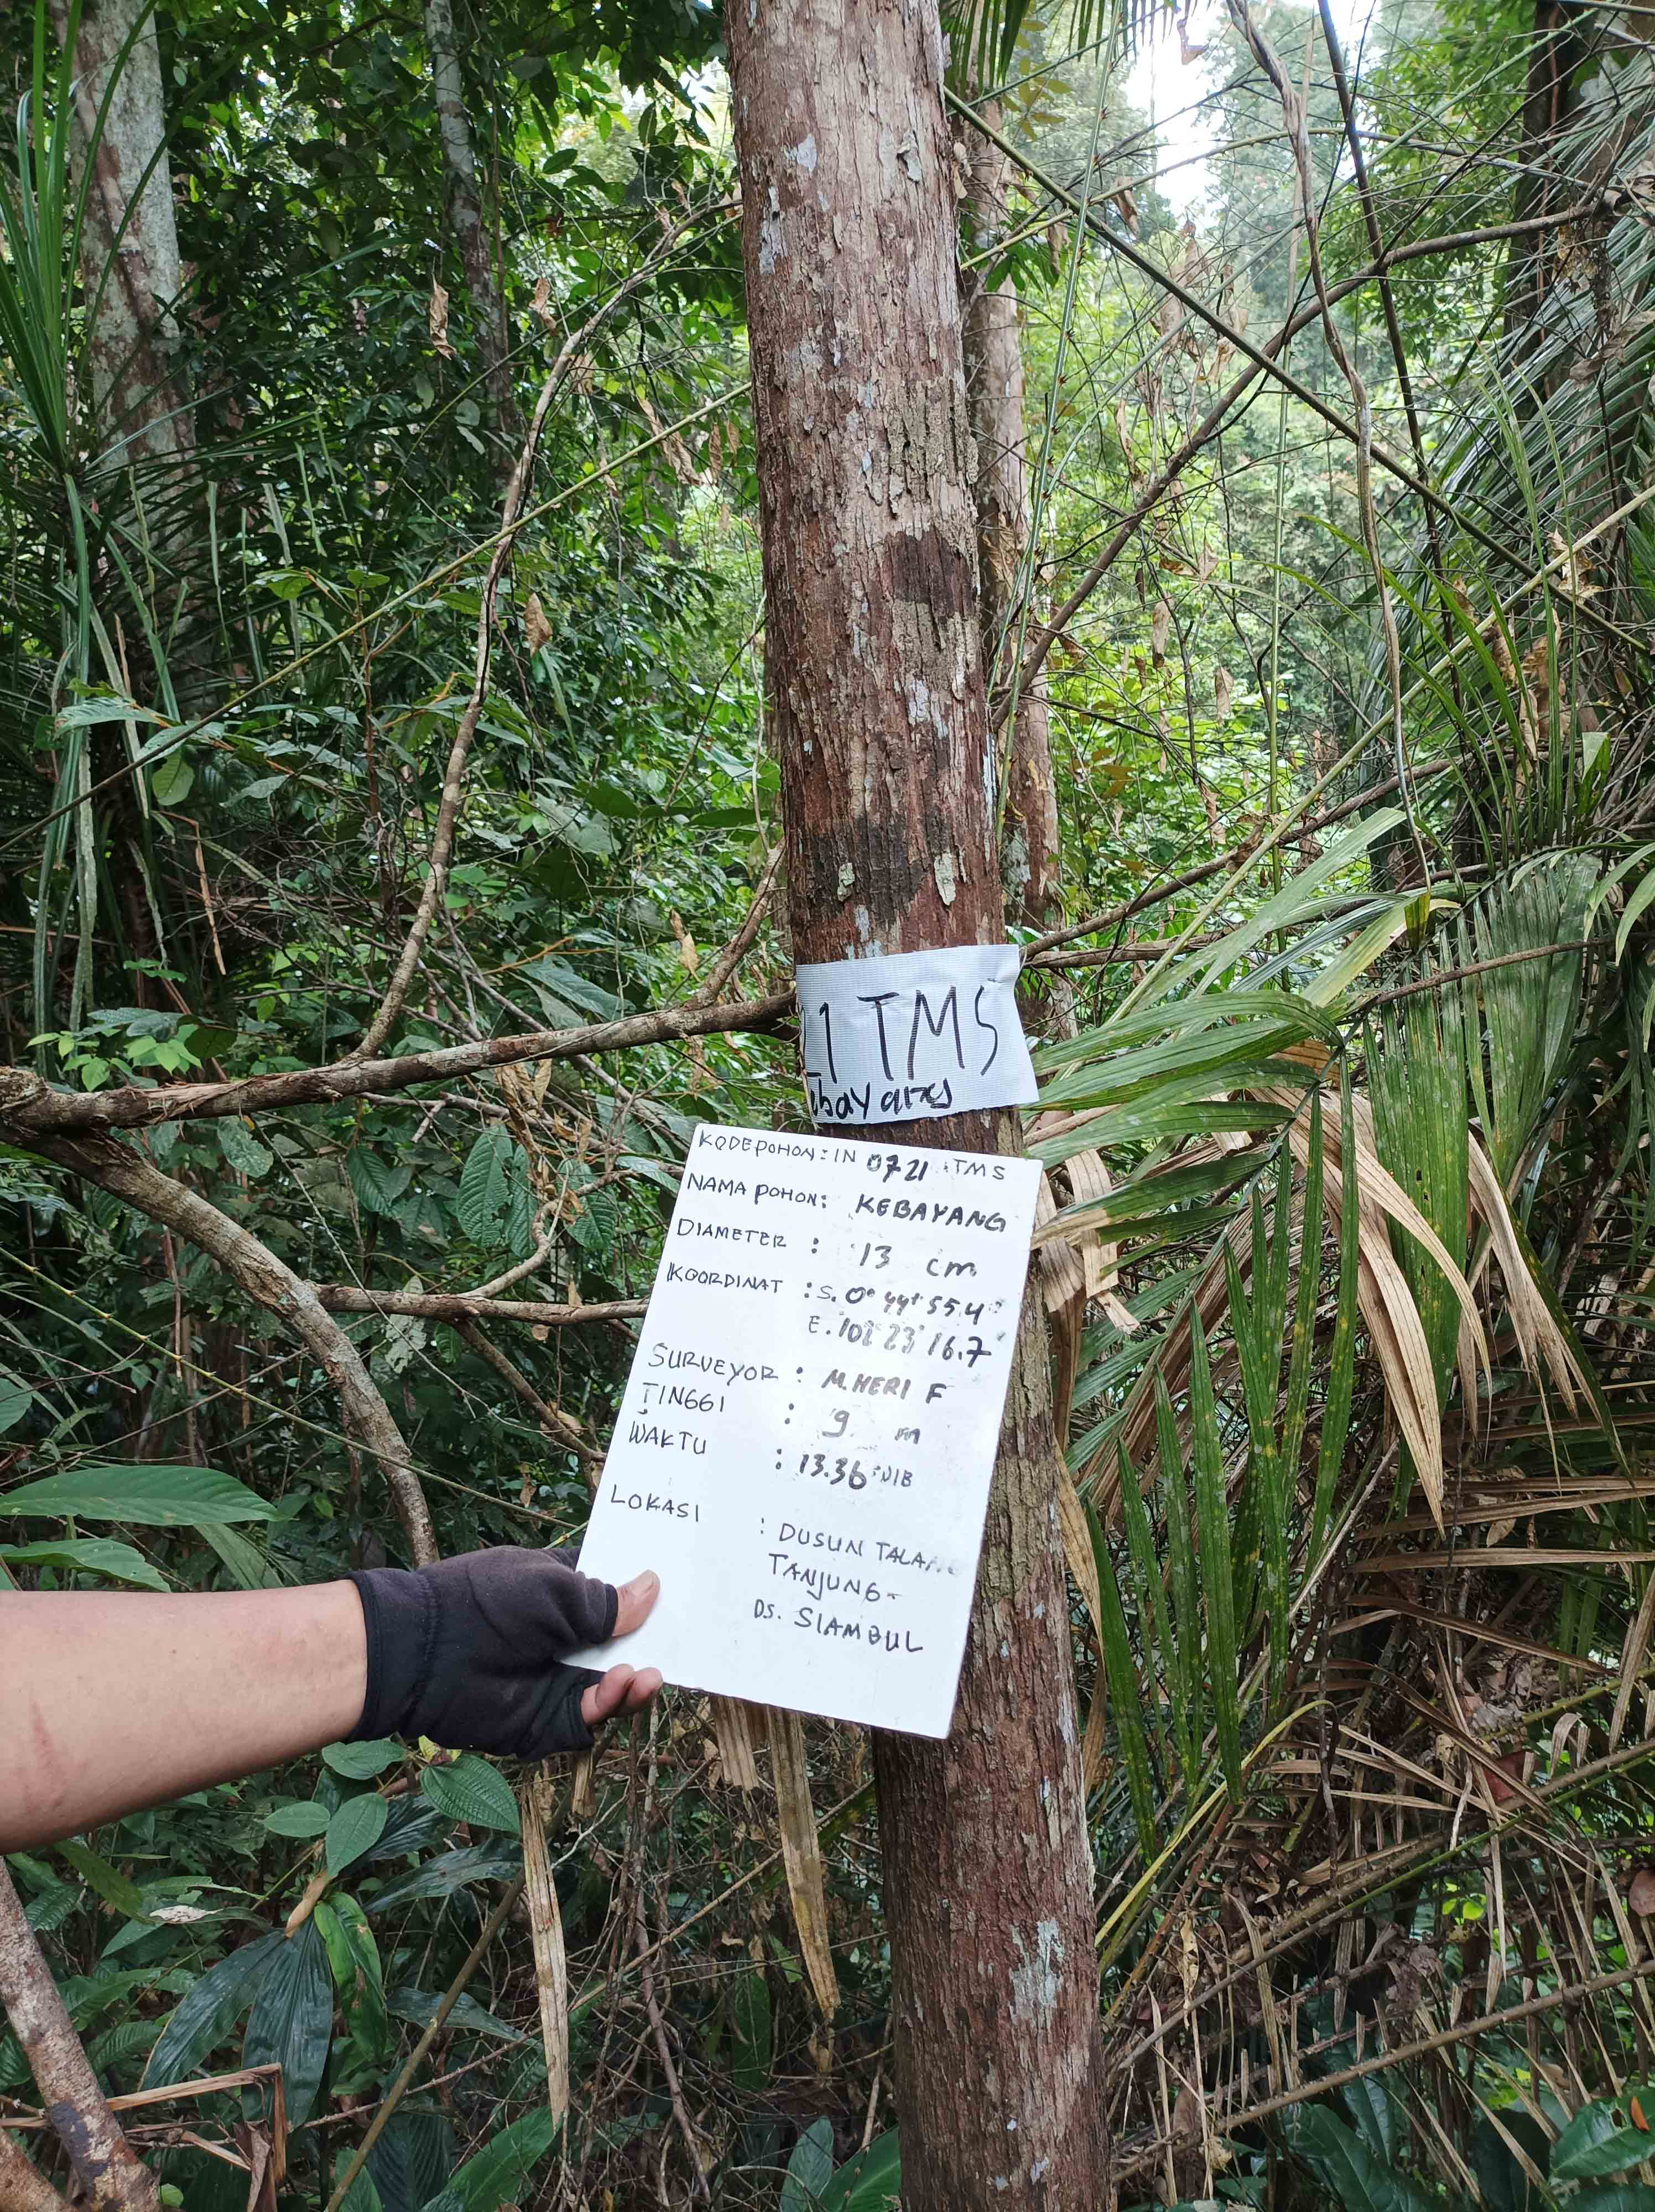 21 TMS
ebayang
KODE POHON : IN 0721 TMS
NAMA POHON : KEBAYANG
DIAMETER : 13 cm
KOORDINAT : S. 0° 44' 55.4"
E. 102° 23' 16.7"
SURVEYOR : M. HERI F
TINGGI : 9 m
WAKTU : 13.36 WIB
LOKASI : DUSUN TALANG
TANJUNG
DS. SIAMBUL